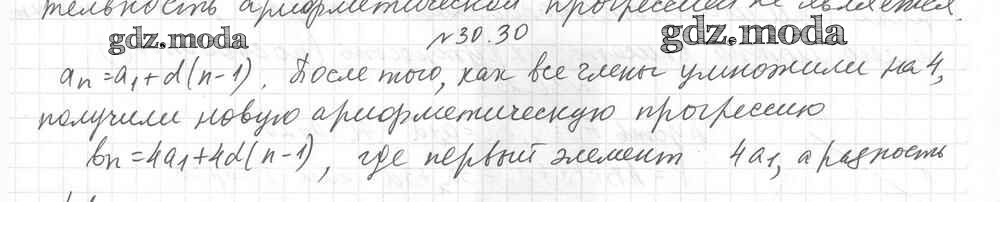 тельность арифметической прогрессией не является.
№30.30
gdz.moda
gdz.moda
aₙ=a₁+d(n-1). После того, как все члены умножили на 4,
получили новую арифметическую прогрессию
bₙ=4a₁+4d(n-1), где первый элемент 4a₁, а разность